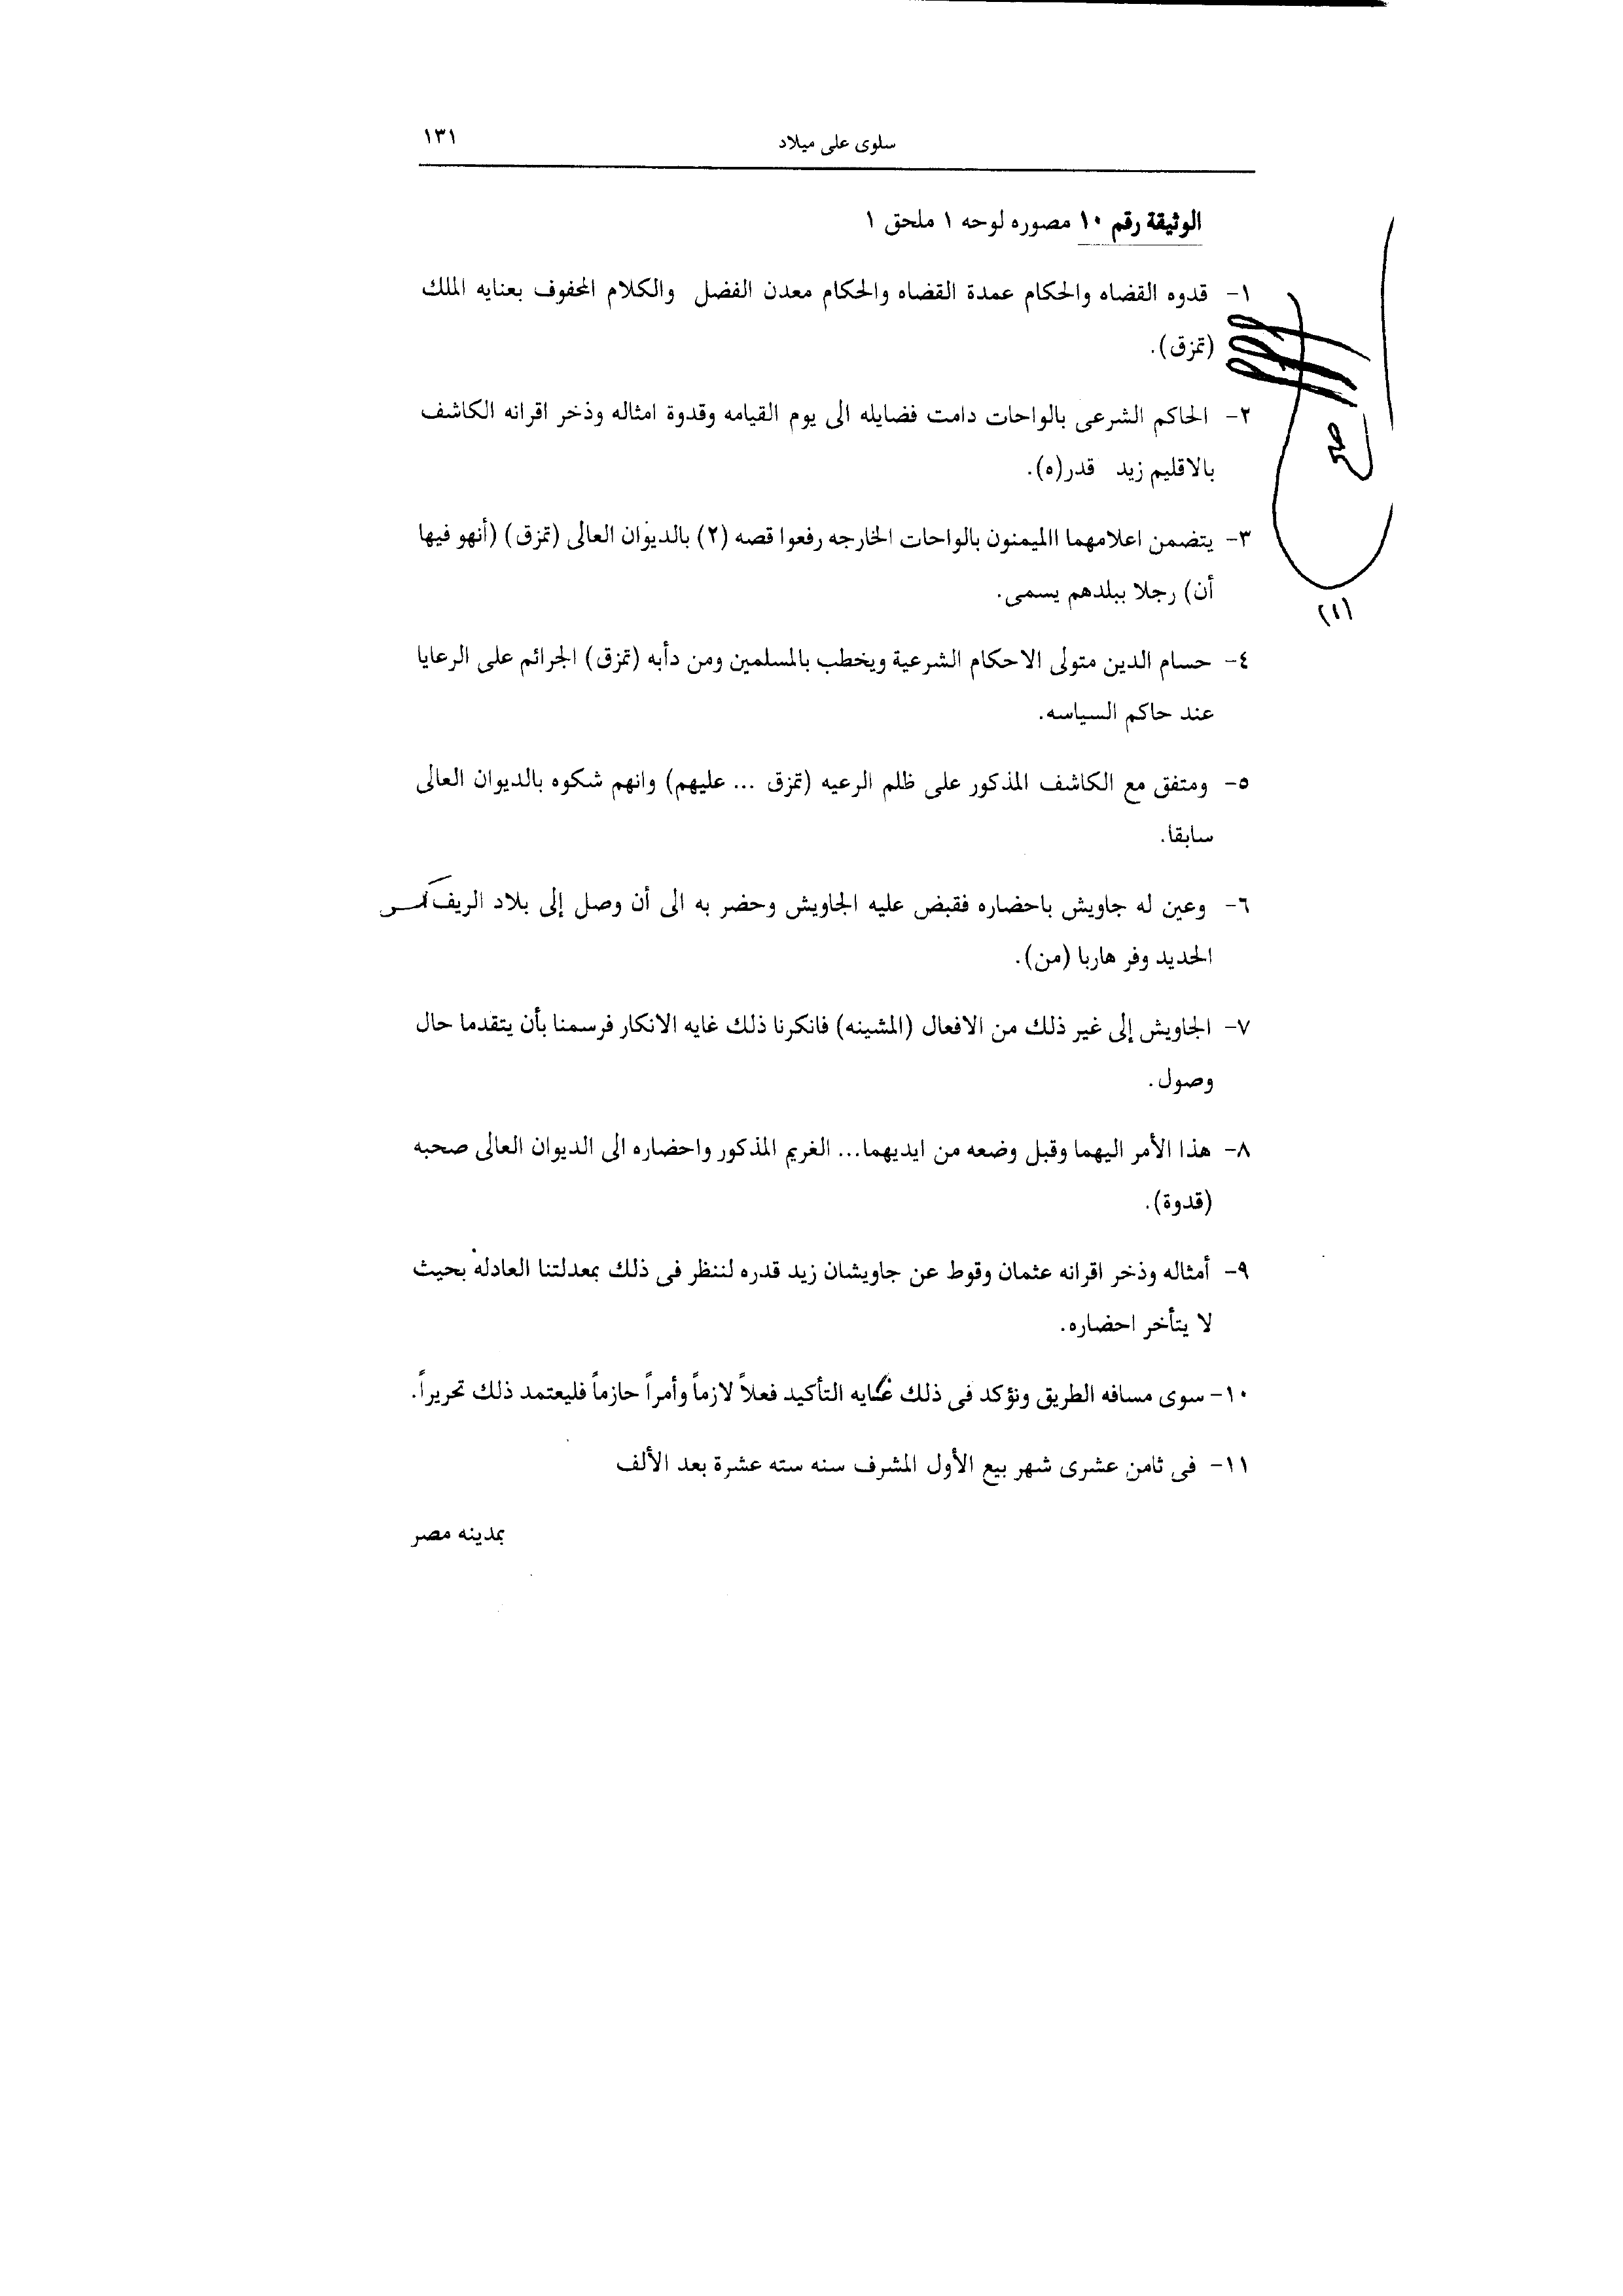 سلوى على ميلاد
١٣١
الوثيقة رقم ١٠ مصوره لوحه ١ ملحق ١
١- قدوه القضاه والحكام عمدة القضاه والحكام معدن الفضل والكلام المحفوف بعنايه الملك
(تمزق).
٢- الحاكم الشرعى بالواحات دامت فضايله الى يوم القيامه وقدوة امثاله وذخر اقرانه الكاشف
بالاقليم زيد قدر(ه).
٣- يتضمن اعلامهما االميمنون بالواحات الخارجه رفعوا قصه (٢) بالديوان العالى (تمزق) (أنهو فيها
أن) رجلا ببلدهم يسمى.
٤- حسام الدين متولى الاحكام الشرعية ويخطب بالمسلمين ومن دأبه (تمزق) الجرائم على الرعايا
عند حاكم السياسه.
٥- ومتفق مع الكاشف المذكور على ظلم الرعيه (تمزق ... عليهم) وانهم شكوه بالديوان العالى
سابقا.
٦- وعين له جاويش باحضاره فقبض عليه الجاويش وحضر به الى أن وصل إلى بلاد الريف
الحديد وفر هاربا (من).
٧- الجاويش إلى غير ذلك من الافعال (المشينه) فانكرنا ذلك غايه الانكار فرسمنا بأن يتقدما حال
وصول.
٨- هذا الأمر اليهما وقبل وضعه من ايديهما... الغريم المذكور واحضاره الى الديوان العالى صحبه
(قدوة).
٩- أمثاله وذخر اقرانه عثمان وقوط عن جاويشان زيد قدره لننظر فى ذلك بمعدلتنا العادله بحيث
لا يتأخر احضاره.
١٠- سوى مسافه الطريق ونؤكد فى ذلك غايه التأكيد فعلاً لازماً وأمراً حازماً فليعتمد ذلك تحريراً.
١١- فى ثامن عشرى شهر بيع الأول المشرف سنه سته عشرة بعد الألف
بمدينه مصر
صح
(١)